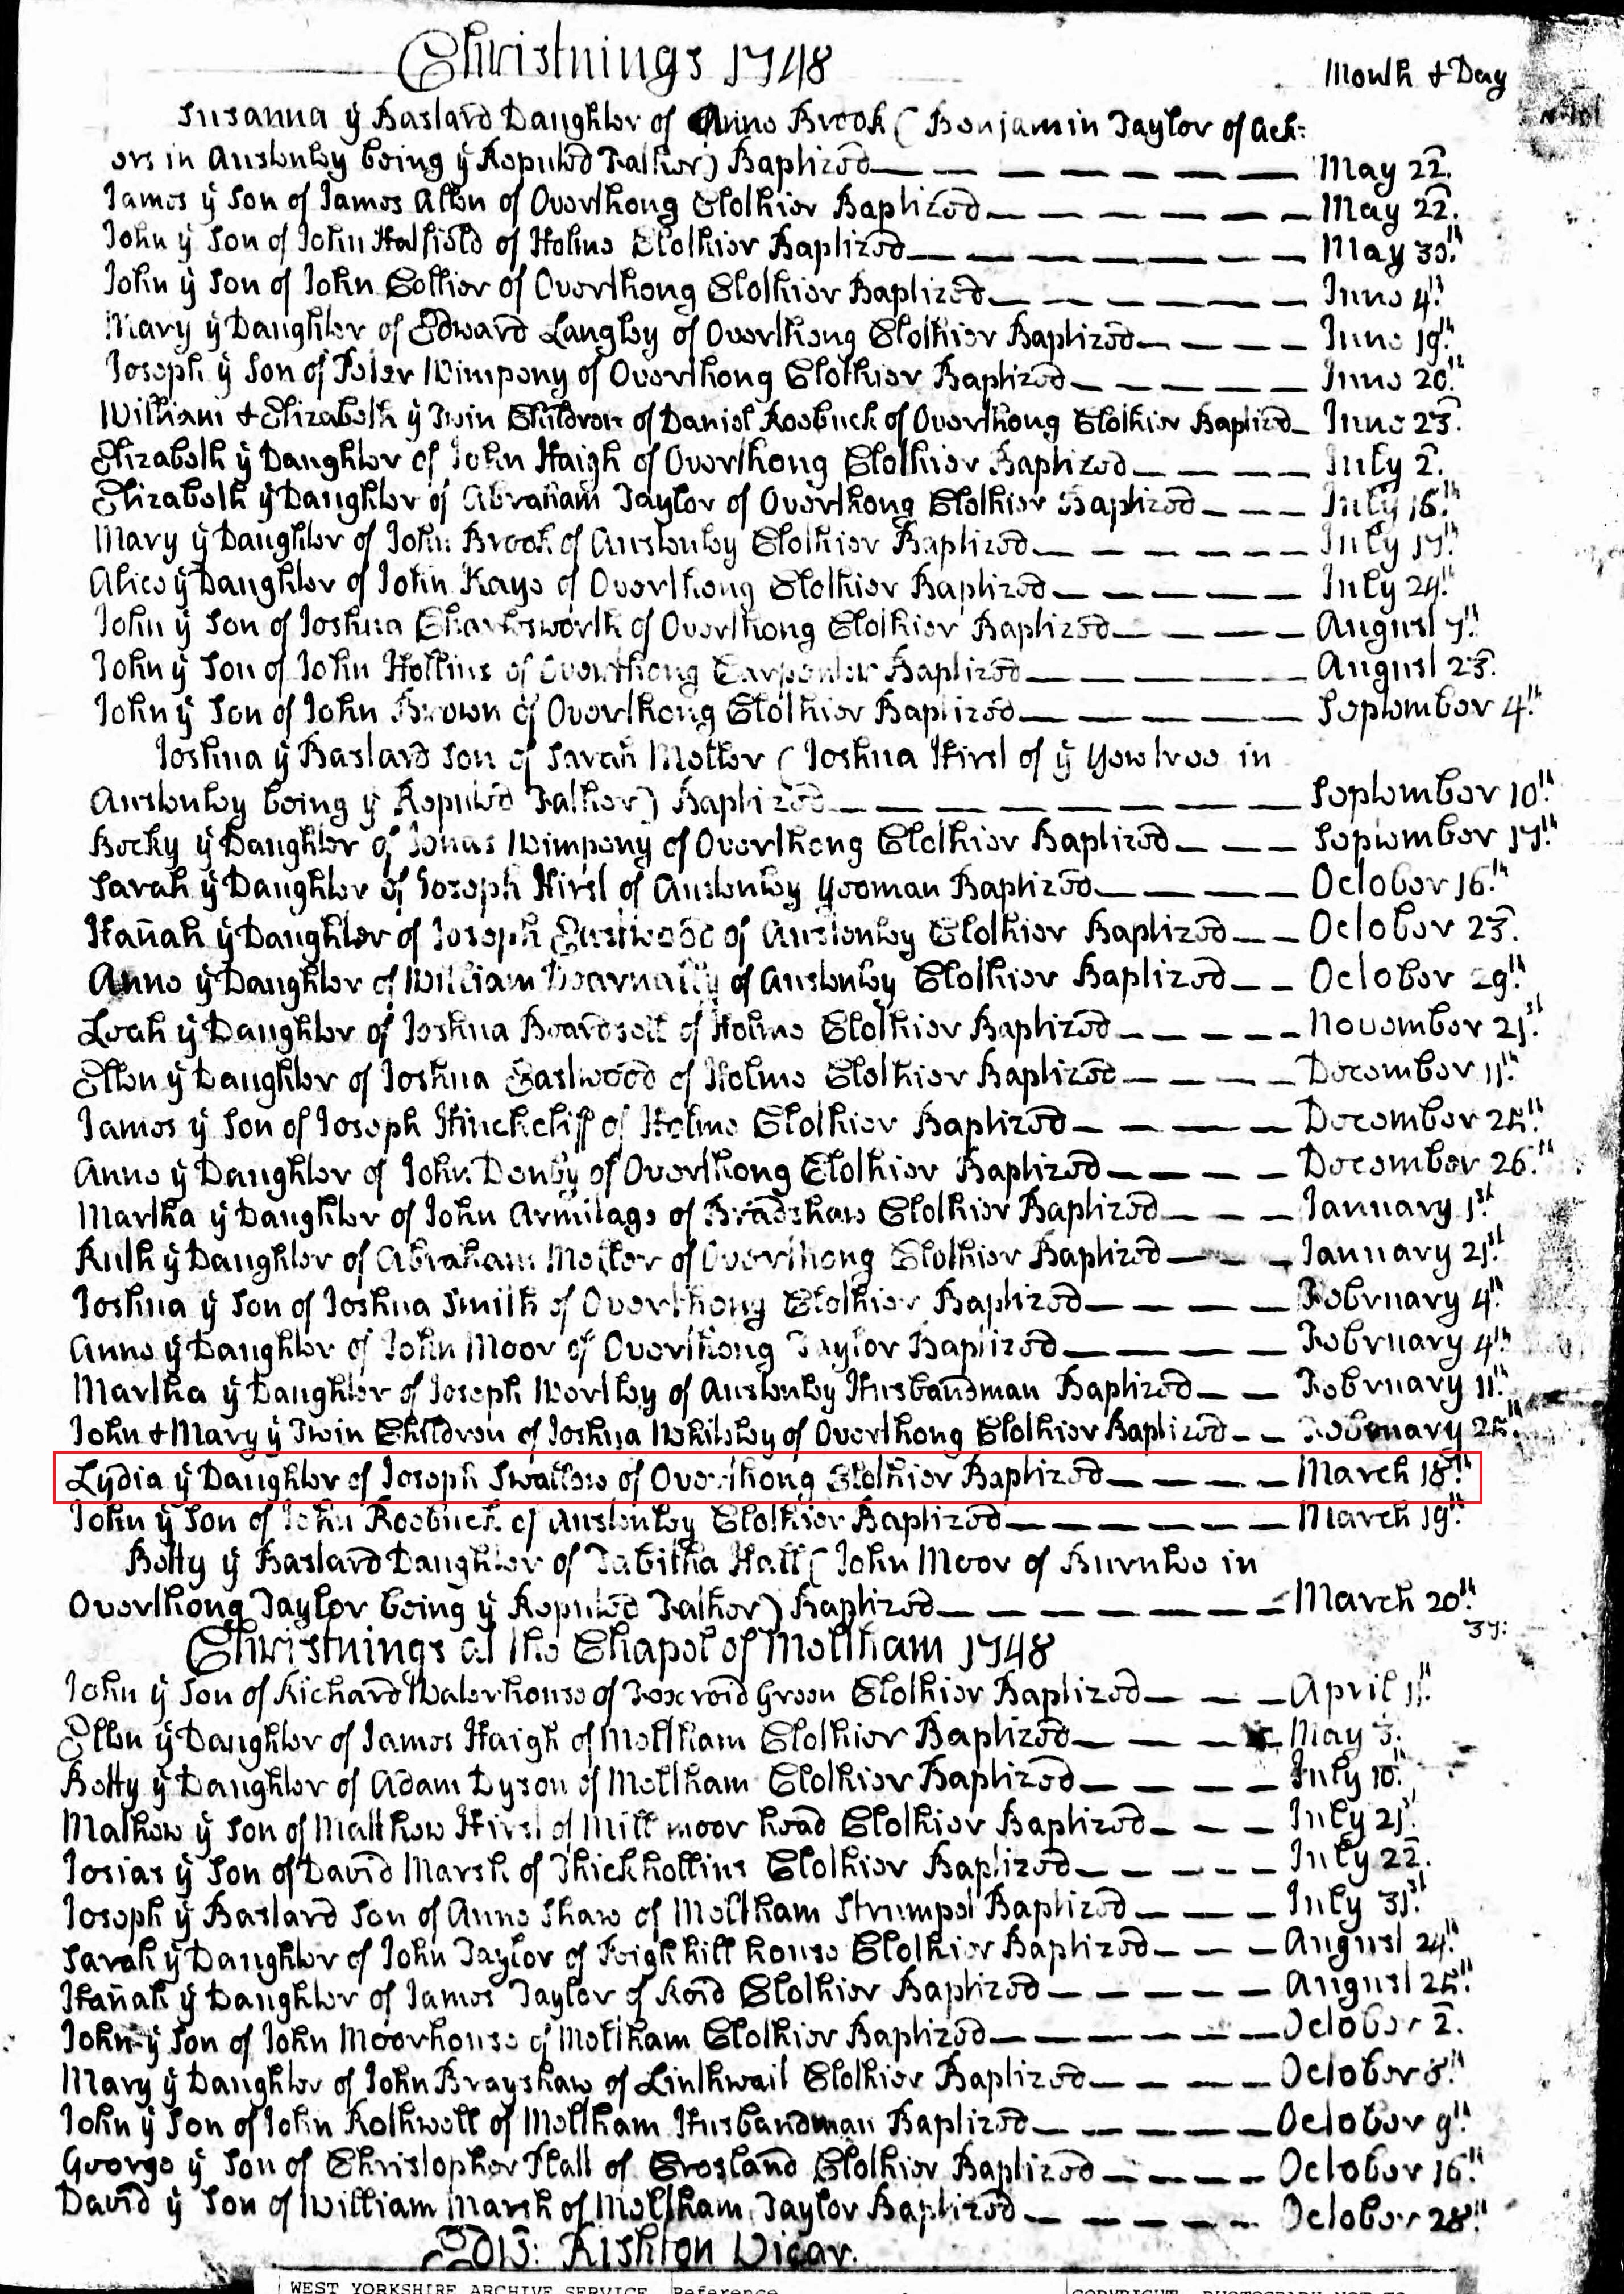 Christnings 1748
Month & Day
Susanna ÿ Bastard Daughter of Anne Brook (Benjamin Taylor of Ack:
ers in Austenley being ÿ Reputed Father) Baptized — — — — — — — May 22.
James ÿ Son of James Allen of Overthong Clothier Baptized — — — — — — May 22.
John ÿ Son of John Hatfield of Holme Clothier Baptized — — — — — — — May 30th.
John ÿ Son of John Collier of Overthong Clothier Baptized — — — — — — June 4th.
Mary ÿ Daughter of Edward Langley of Overthong Clothier Baptized — — — — June 19th.
Joseph ÿ Son of Peter Wimpeny of Overthong Clothier Baptized — — — — — June 20th.
William & Elizabeth ÿ Twin Children of Daniel Roebuck of Overthong Clothier Baptized — June 23.
Elizabeth ÿ Daughter of John Haigh of Overthong Clothier Baptized — — — — July 2.
Elizabeth ÿ Daughter of Abraham Taylor of Overthong Clothier Baptized — — — July 16th.
Mary ÿ Daughter of John Brook of Austenley Clothier Baptized — — — — — — July 17th.
Alice ÿ Daughter of John Kaye of Overthong Clothier Baptized — — — — — July 24th.
John ÿ Son of Joshua Charlesworth of Overthong Clothier Baptized — — — — August 7th.
John ÿ Son of John Hollins of Overthong Carpenter Baptized — — — — — — August 23.
John ÿ Son of John Brown of Overthong Clothier Baptized — — — — — September 4th.
Joshua ÿ Bastard Son of Sarah Mellor (Joshua Hirst of ÿ Yewtree in
Austenley being ÿ Reputed Father) Baptized — — — — — — — — September 10th.
Becky ÿ Daughter of Jonas Wimpeny of Overthong Clothier Baptized — — — September 17th.
Sarah ÿ Daughter of Joseph Hirst of Austenley Yeoman Baptized — — — — October 16th.
Hañah ÿ Daughter of Joseph Eastwood of Austenley Clothier Baptized — — October 23.
Anne ÿ Daughter of William Dearnally of Austenley Clothier Baptized — — October 29th.
Leah ÿ Daughter of Joshua Beardsell of Holme Clothier Baptized — — — — — November 21st.
Ellen ÿ Daughter of Joshua Eastwood of Holme Clothier Baptized — — — — December 11th.
James ÿ Son of Joseph Hinchcliff of Holme Clothier Baptized — — — — — December 25th.
Anne ÿ Daughter of John Denby of Overthong Clothier Baptized — — — — December 26th.
Martha ÿ Daughter of John Armitage of Bradshaw Clothier Baptized — — — January 1st.
Ruth ÿ Daughter of Abraham Mellor of Overthong Clothier Baptized — — — January 21st.
Joshua ÿ Son of Joshua Smith of Overthong Clothier Baptized — — — — — February 4th.
Anne ÿ Daughter of John Moor of Overthong Taylor Baptized — — — — — February 4th.
Martha ÿ Daughter of Joseph Wortley of Austenley Husbandman Baptized — — February 11th.
John & Mary ÿ Twin Children of Joshua Whiteley of Overthong Clothier Baptized — — February 25th.
Lydia ÿ Daughter of Joseph Swallow of Overthong Clothier Baptized — — — — March 18th.
John ÿ Son of John Roebuck of Austenley Clothier Baptized — — — — — — March 19th.
Betty ÿ Bastard Daughter of Tabitha Hall (John Moor of Burnlee in
Overthong Taylor being ÿ Reputed Father) Baptized — — — — — — — March 20th.
37:
Christnings at the Chapel of Meltham 1748
John ÿ Son of Richard Waterhouse of Foxroid Green Clothier Baptized — — — April 1st.
Ellen ÿ Daughter of James Haigh of Meltham Clothier Baptized — — — — May 3.
Betty ÿ Daughter of Adam Dyson of Meltham Clothier Baptized — — — — July 10th.
Mathew ÿ Son of Matthew Hirst of Mill moor head Clothier Baptized — — — July 21st.
Josias ÿ Son of David Marsh of Thickhollins Clothier Baptized — — — — — July 22.
Joseph ÿ Bastard Son of Anne Shaw of Meltham Strumpet Baptized — — — July 31st.
Sarah ÿ Daughter of John Taylor of Feighhill house Clothier Baptized — — — August 24th.
Hañah ÿ Daughter of James Taylor of Roid Clothier Baptized — — — — — August 25th.
John ÿ Son of John Moorhouse of Meltham Clothier Baptized — — — — — October 2.
Mary ÿ Daughter of John Brayshaw of Linthwait Clothier Baptized — — — — October 8th.
John ÿ Son of John Rothwell of Meltham Husbandman Baptized — — — — — October 9th.
George ÿ Son of Christopher Hall of Crosland Clothier Baptized — — — — October 16th.
David ÿ Son of William Marsh of Meltham Taylor Baptized — — — — — October 28th.
Edw̄: Rishton Vicar.
WEST YORKSHIRE ARCHIVE SERVICE Reference COPYRIGHT PHOTOGRAPH NOT TO